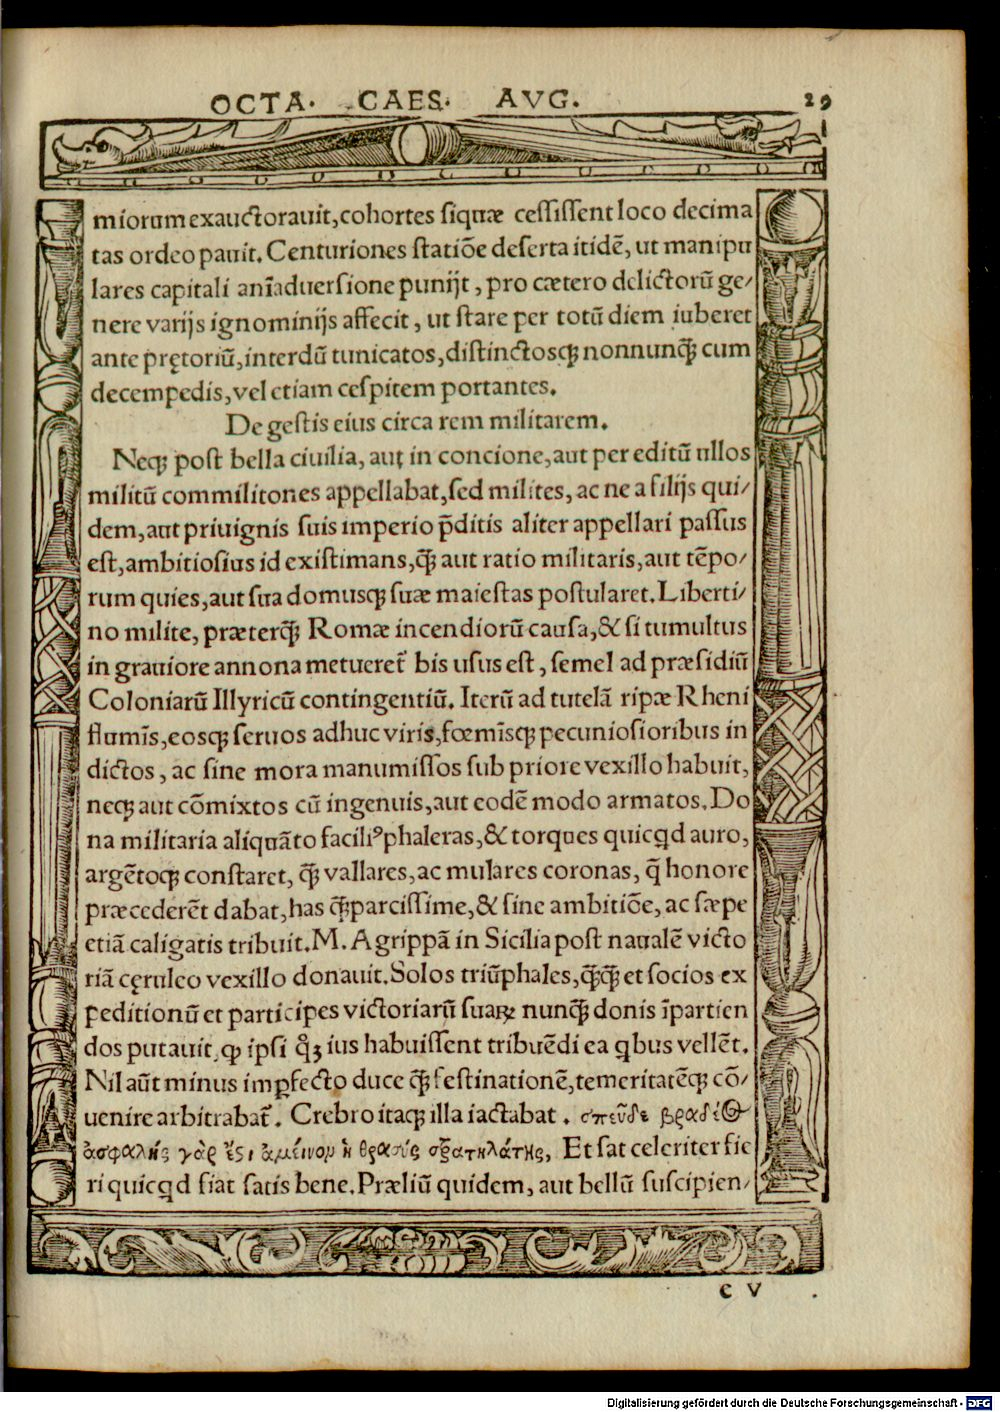 OCTA. CAES. AVG. 29
miorum exauctorauit, cohortes siquæ cessissent loco decima
tas ordeo pauit. Centuriones statiōe deserta itidē, ut manipu
lares capitali anīaduersione punijt, pro cætero delictorū ge/
nere varijs ignominijs affecit, ut stare per totū diem iuberet
ante prętoriū, interdū tunicatos, distinctosq; nonnunq̄ cum
decempedis, vel etiam cespitem portantes.
De gestis eius circa rem militarem.
Neq; post bella ciuilia, aut in concione, aut per editū ullos
militū commilitones appellabat, sed milites, ac ne a filijs qui/
dem, aut priuignis suis imperio p̄ditis aliter appellari passus
est, ambitiosius id existimans, q̄ aut ratio militaris, aut tēpo/
rum quies, aut sua domusq; suæ maiestas postularet. Liberti/
no milite, præterq̄ Romæ incendiorū causa, & si tumultus
in grauiore annona metueret᷑ bis usus est, semel ad præsidiū
Coloniarū Illyricū contingentiū. Iterū ad tutelā ripæ Rheni
flumīs, eosq; seruos adhuc viris, fœmīsq; pecuniosioribus in
dictos, ac sine mora manumissos sub priore vexillo habuit,
neq; aut cōmixtos cū ingenuis, aut eodē modo armatos. Do
na militaria aliquāto faciliꝰ phaleras, & torques quicqd auro,
argētoq; constaret, q̄ vallares, ac mulares coronas, q̄ honore
præcederēt dabat, has q̄ parcissime, & sine ambitiōe, ac sæpe
etiā caligatis tribuit. M. Agrippā in Sicilia post naualē victo
riā cęruleo vexillo donauit. Solos triūphales, q̄q̄ et socios ex
peditionū et participes victoriarū suaꝝ nunq̄ donis īpartien
dos putauit, ꝙ ipsi qꝫ ius habuissent tribuēdi ea qbus vellēt.
Nil aūt minus imꝑfecto duce q̄ festinationē, temeritatēq; cō/
uenire arbitrabat᷑. Crebro itaq; illa iactabat. σπεῦδε βραδέως
ἀσφαλής γὰρ ἔστι ἀμείνον ἢ θρασύς στρατηλάτης, Et sat celeriter fie
ri quicqd fiat satis bene. Præliū quidem, aut bellū suscipien/
C V
Digitalisierung gefördert durch die Deutsche Forschungsgemeinschaft - DFG